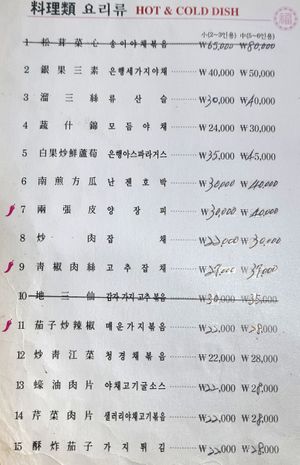 料理類 요리류 HOT & COLD DISH
小(2~3인용) 中(5~6인용)
1 松茸菜心 송이야채볶음 ₩65,000 ₩80,000
2 銀果三素 은행세가지야채 ₩40,000 ₩50,000
3 溜三絲 류산슬 ₩30,000 ₩40,000
4 蔬什錦 모듬야채 ₩24,000 ₩30,000
5 白果炒鮮蘆荀 은행아스파라거스 ₩35,000 ₩45,000
6 南煎方瓜 난젠호박 ₩30,000 ₩40,000
7 兩張皮 양장피 ₩30,000 ₩40,000
8 炒肉 잡채 ₩22,000 ₩30,000
9 靑椒肉絲 고추잡채 ₩27,000 ₩37,000
10 地三仙 감자가지고추볶음 ₩30,000 ₩35,000
11 茄子炒辣椒 매운가지볶음 ₩22,000 ₩28,000
12 炒靑江菜 청경채볶음 ₩22,000 ₩28,000
13 蠔油肉片 야채고기굴소스 ₩22,000 ₩28,000
14 芹菜肉片 샐러리야채고기볶음 ₩22,000 ₩28,000
15 酥炸茄子 가지튀김 ₩22,000 ₩28,000